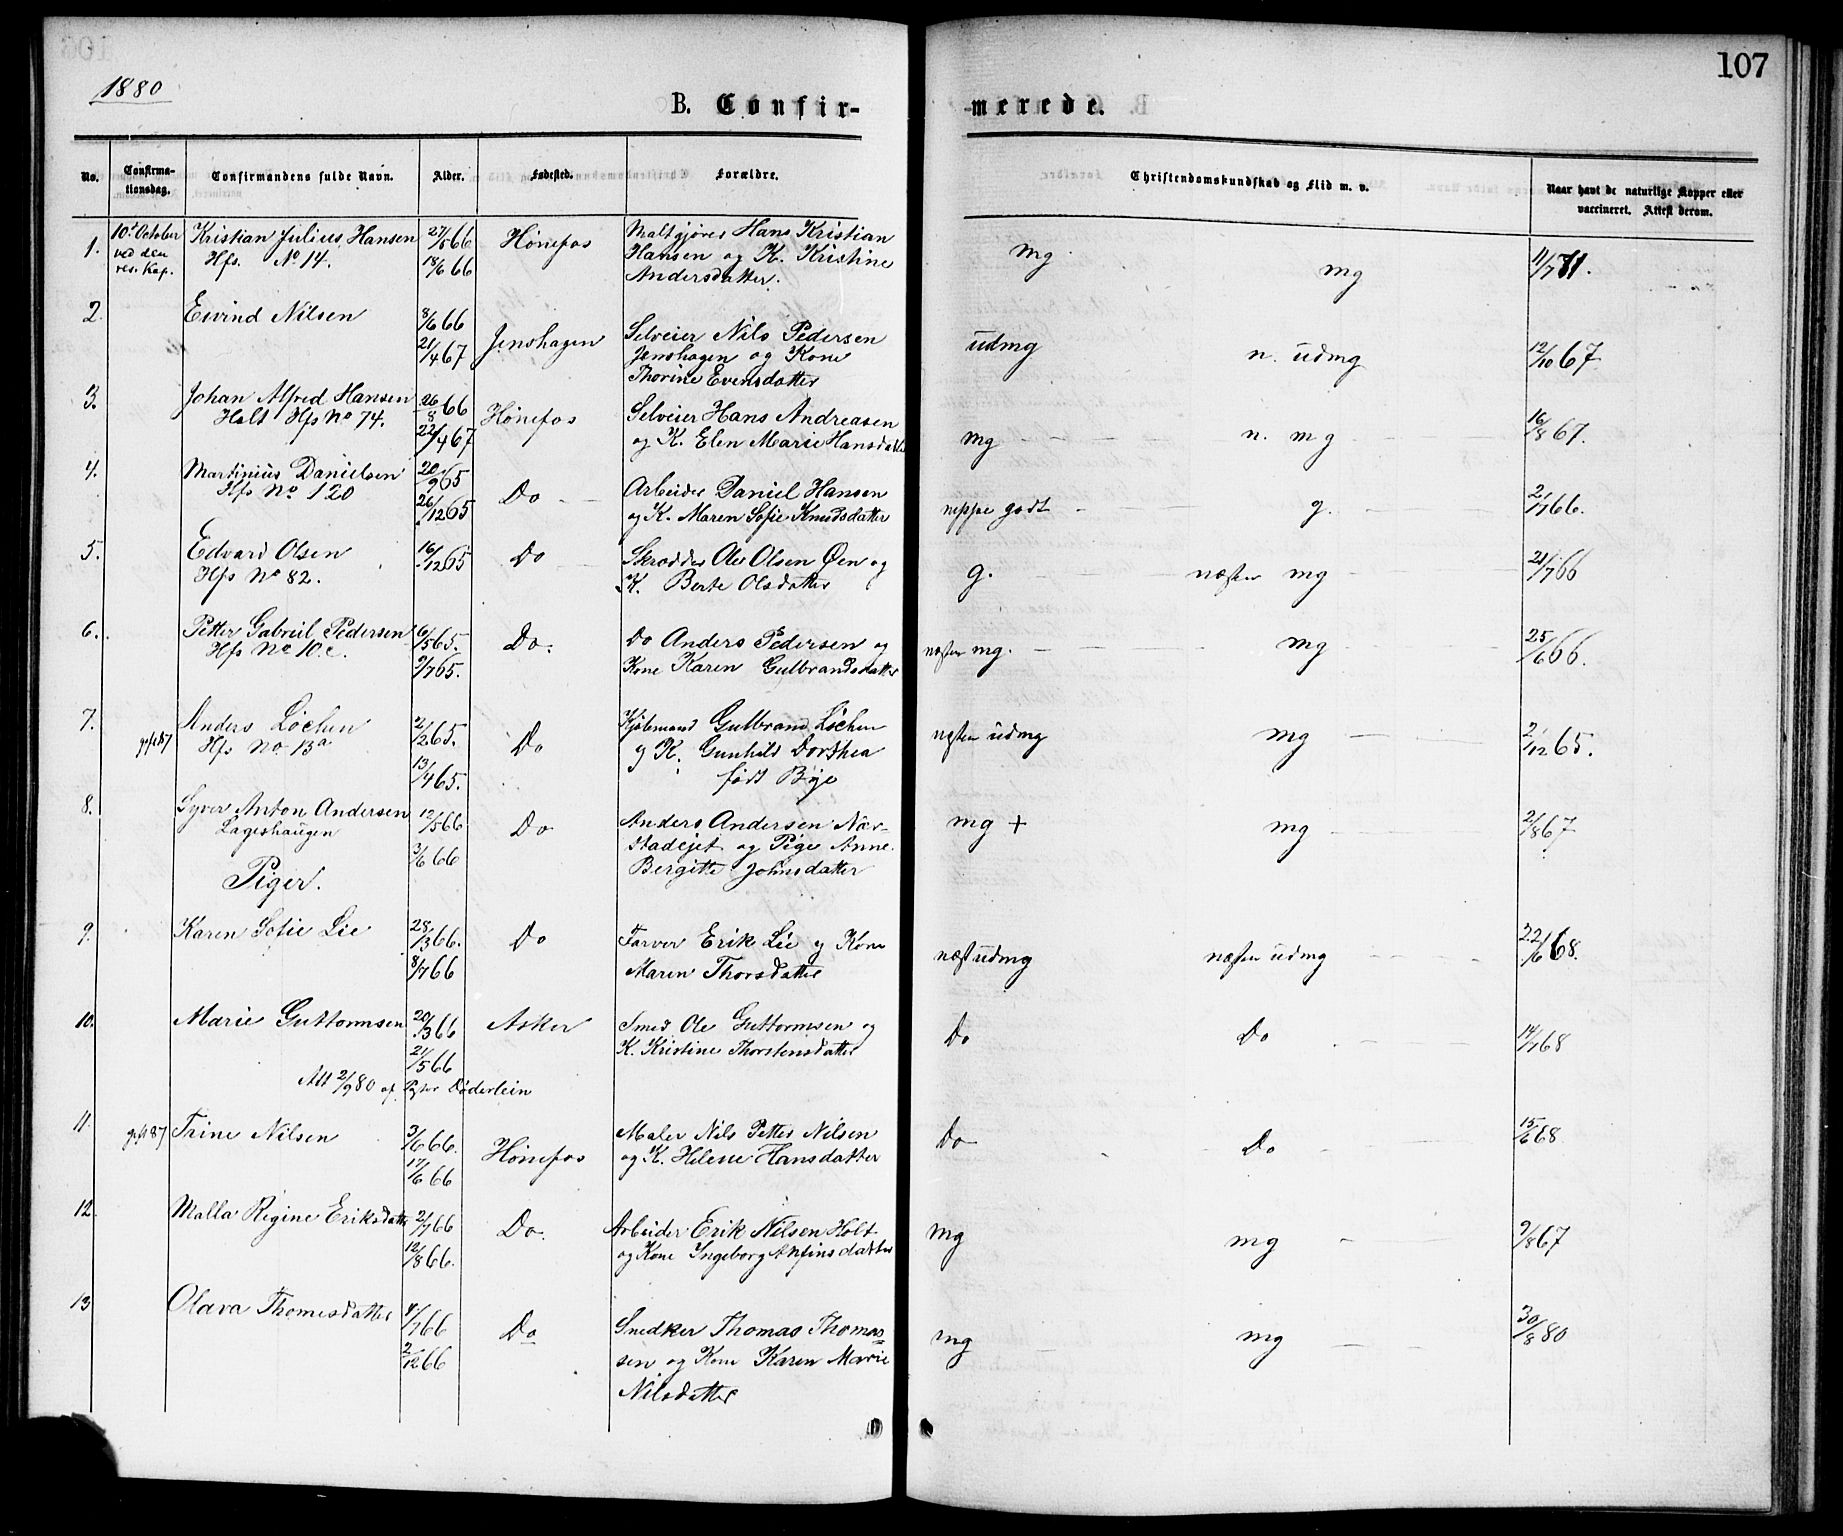 107
1880
B. Confir-
-merede.
No.
Confirma-
tionsdag.
Confirmandens fulde Navn.
Alder.
Fødested.
Forældre.
Christendomskundskab og Flid m. v.
Naar havt de naturlige Kopper eller
vaccineret. Attest derom.
1. 10de October Kristian Julius Hansen 27/5 66 Hønefos Maltgjører Hans Kristian mg. mg 11/7 71.
ved den Hfs. No 14. 18/6 66 Hansen og K. Kristine
res. Kap. Andersdatter.
2. Eivind Nilsen 8/6 66 Jenshagen Selveier Nils Pedersen udmg n. udmg 12/10 67
21/4 67 Jenshagen og Kone
Thorine Evensdatter
3. Johan Alfred Hansen 26/8 66 Hønefos Selveier Hans Andreasen mg n. mg 16/8 67.
Holt Hfs No 74. 22/4 67 og K. Elen Marie Hansdatter
4. Martinius Danielsen 20/9 65 Do Arbeider Daniel Hansen neppe godt g. 2/7 66.
Hfs No 120 26/12 65 og K. Maren Sofie Knudsdatter
5. Edvard Olsen 16/12 65 Do Skrædder Ole Olsen Øen og g. næsten mg 21/7 66
Hfs No 82. K. Berte Olsdatter
6. Petter Gabriel Pedersen 16/5 65. Do. Do Anders Pedersen og næsten mg. mg 25/6 66.
Hfs No 10.c. 9/7 65. Kone Karen Gulbrandsdatter
7. gift 87 Anders Løchen 2/2 65. Do Kjøbmand Gulbrand Løchen næsten udmg mg 2/12 65.
Hfs No 13a 13/4 65. og K. Gunhild Dorthea
født Bøje
8. Syver Anton Andersen 12/5 66 Do Anders Andersen Nær- mg + mg 2/8 67
Lageshaugen 3/6 66 stadejet og Pige Anne
Bergitte Johnsdatter
Piger.
9. Karen Sofie Lie 28/3 66. Do Farver Erik Lie og Kone næst udmg næsten udmg 22/6 68.
8/7 66 Maren Thorsdatter
10. Marie Guttormsen 20/3 66 Asker Smed Ole Guttormsen og Do Do 14/7 68
21/5 66 K. Kristine Thorstensdatter
Att 2/9 80 af Pastor Døderlein
11. gift 87 Trine Nilsen 3/6 66. Hønefos Maler Nils Petter Nilsen Do Do 15/6 68
17/6 66 og K. Helene Hansdatter
12. Malla Regine Eriksdatter 2/7 66 Do. Arbeider Erik Nilsen Holt mg mg 9/8 67
12/8 66. og Kone Ingeborg Arfinsdatter
13 Olava Thomesdatter 4/7 66 Do Snedker Thomas Thomas= mg mg 30/8 80
2/12 66 sen og Kone Karen Marie
Nilsdatter